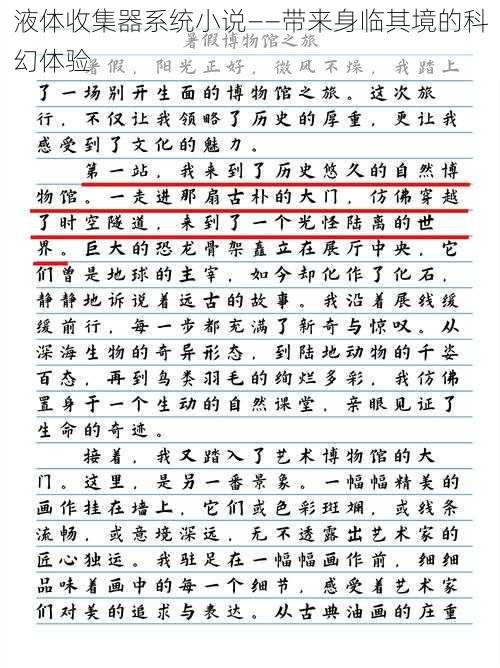 液体收集器系统小说——带来身临其境的科
幻体验
暑假博物馆之旅
暑假，阳光正好，微风不燥，我踏上
了一场别开生面的博物馆之旅。这次旅
行，不仅让我领略了历史的厚重，更让我
感受到了文化的魅力。
第一站，我来到了历史悠久的自然博
物馆。一走进那扇古朴的大门，仿佛穿越
了时空隧道，来到了一个光怪陆离的世
界。巨大的恐龙骨架矗立在展厅中央，它
们曾是地球的主宰，如今却化作了化石，
静静地诉说着远古的故事。我沿着展线缓
缓前行，每一步都充满了新奇与惊叹。从
深海生物的奇异形态，到陆地动物的千姿
百态，再到鸟类羽毛的绚烂多彩，我仿佛
置身于一个生动的自然课堂，亲眼见证了
生命的奇迹。
接着，我又踏入了艺术博物馆的大
门。这里，是另一番景象。一幅幅精美的
画作挂在墙上，它们或色彩斑斓，或线条
流畅，或意境深远，无不透露出艺术家的
匠心独运。我驻足在一幅幅画作前，细细
品味着画中的每一个细节，感受着艺术家
们对美的追求与表达。从古典油画的庄重